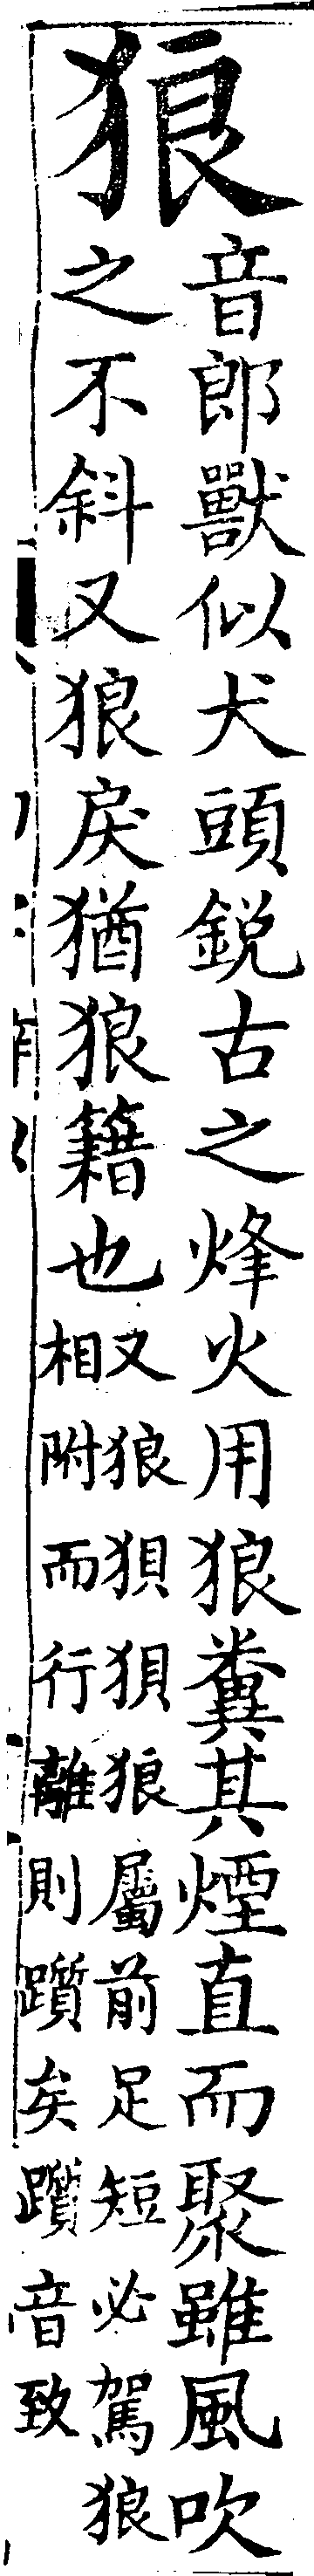 狼
音郎獸似犬頭鋭古之烽火用狼糞其煙直而聚雖風吹
之不斜又狼戾猶狼籍也
又狼狽狽狼屬前足短必駕狼
相附而行離則躓矣躓音致